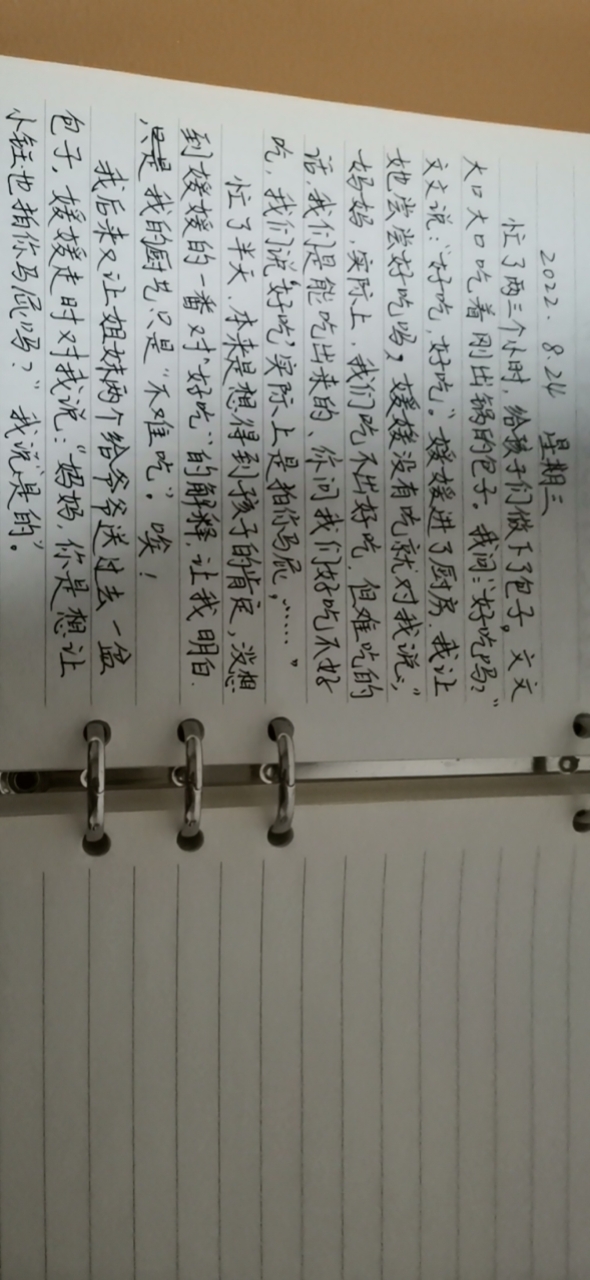 2022. 8.24 星期三
忙了两三个小时,给孩子们做下了包子。文文
大口大口吃着刚出锅的包子。我问:“好吃吗?”
文文说:“好吃,好吃。”媛媛进了厨房,我让
她尝尝好吃吗,媛媛没有吃就对我说:“
妈妈,实际上,我们吃不出好吃,但难吃的
话,我们是能吃出来的、你问我们好吃不好
吃,我们说“好吃”实际上是拍你马屁,……。
忙了半天、本来是想得到孩子的肯定,没想
到媛媛的一番对“好吃”的解释,让我明白.
,只是我的厨艺只是“不难吃”。唉!
我后来又让姐妹两个给爷爷送过去一盆
包子,媛媛走时对我说:“妈妈,你是想让
小钰也拍你马屁吗?”我说“是的”。